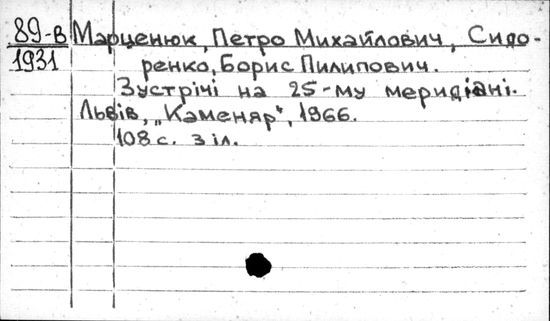 89-в Марценюк, Петро Михайлович, Сидо-
1931 ренко, Борис Пилипович.
Зустрічі на 25-му меридіані.
Львів, „Каменяр", 1966.
108 с. з іл.